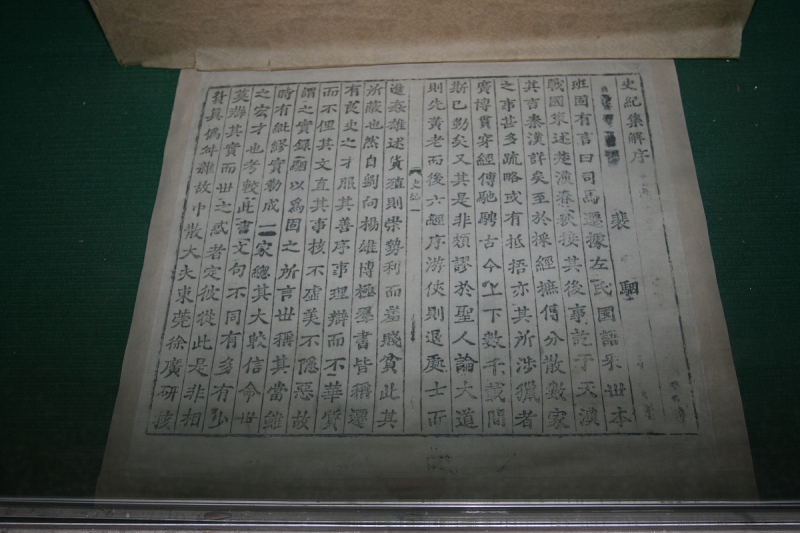 史紀集解序
裴駰
班固有言曰司馬遷據左氏國語采世本
戰國策述楚漢春秋接其後事訖于天漢
其言秦漢詳矣至於採經摭傳分散數家
之事甚多疏略或有抵捂亦其所涉獵者
廣博貫穿經傳馳騁古今上下數千載間
斯已勤矣又其是非頗謬於聖人論大道
則先黃老而後六經序游俠則退處士而
史記一
進姦雄述貨殖則崇勢利而羞賤貧此其
所蔽也然自劉向揚雄博極羣書皆稱遷
有良史之才服其善序事理辯而不華質
而不俚其文直其事核不虛美不隱惡故
謂之實錄駰以爲固之所言世稱其當雖
時有紕繆實勒成一家總其大較信命世
之宏才也考較此書文句不同有多有少
莫辯其實而世之惑者定彼從此是非相
貿真僞舛雜故中散大夫東莞徐廣研核